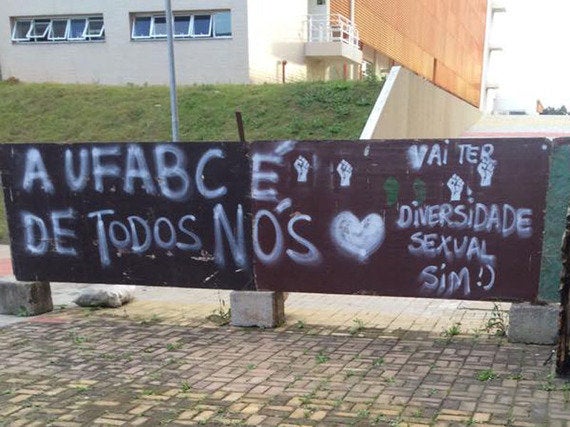 A UFABC É
DE TODOS NÓS
VAI TER
DIVERSIDADE
SEXUAL
SIM!)